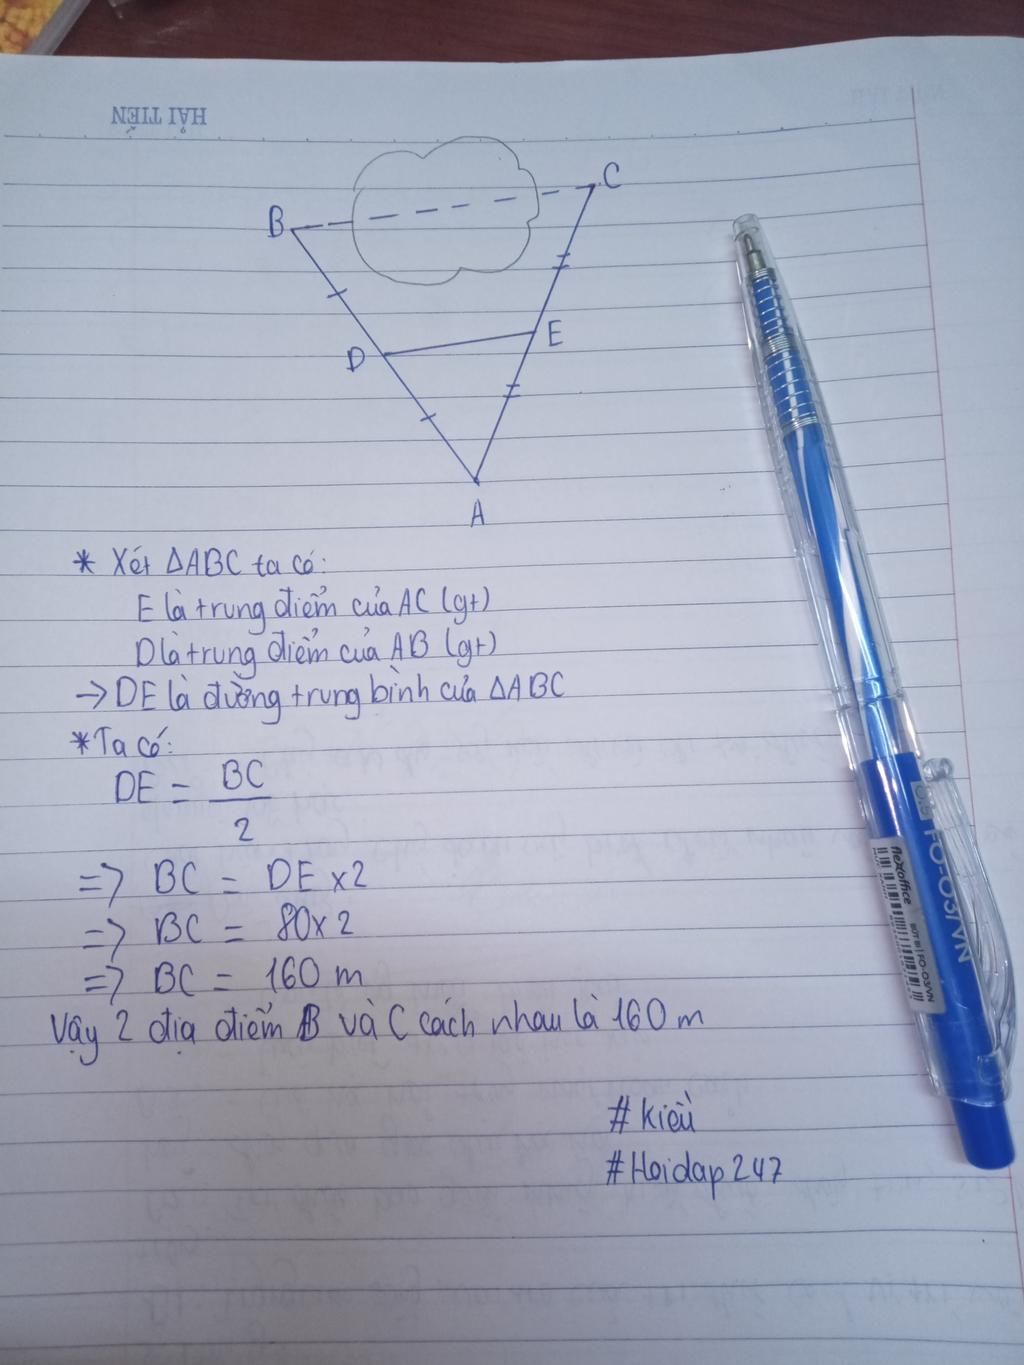 HẢI TIẾN
B
C
D
E
A
* Xét ΔABC ta có:
E là trung điểm của AC (gt)
D là trung điểm của AB (gt)
→ DE là đường trung bình của ΔABC
* Ta có:
DE = BC
2
=> BC = DE x 2
=> BC = 80 x 2
=> BC = 160 m
Vậy 2 địa điểm B và C cách nhau là 160 m
# kiều
# Hoidap 247
flexoffice
BÚT BI FO-03/VN
0.5 FO-03/VN